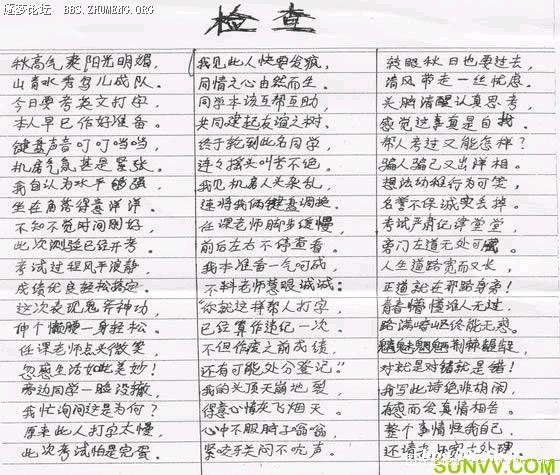 逐梦论坛 BBS.ZHUMENG.ORG
检查
秋高气爽阳光明媚,
山青水秀鸟儿成队。
今日要考英文打字,
本人早已作好准备。
键盘声音叮叮当当,
机房气氛甚是紧张。
我自认为水平够强,
坐在角落得意洋洋。
不知不觉时间刚好,
此次测验已经开考。
考试过程风平浪静,
成绩优良轻松搞定。
这次表现鬼斧神功,
伸个懒腰一身轻松。
任课老师点头微笑,
忽感生活如此美妙!
旁边同学一脸没辙,
我忙询问这是为何?
原来此人打字太慢,
此次考试怕是完蛋。
我见此人快要发疯,
同情之心由然而生。
同学本该互帮互助,
共同建起友谊之树。
终于轮到此名同学,
连连摇头叫苦不绝。
我见机房人头杂乱,
连将我俩键盘调换。
任课老师脚步缓慢,
前后左右不停查看。
我本准备一气呵成,
不料老师慧眼诚诚。
“你就这样帮人打字,
已经算作违纪一次。
不但作废之前成绩,
还有可能处分登记。”
我的头顶天崩地裂,
得意心情灰飞烟灭。
心中不服脖子
紧咬牙关闷不吭声。
转眼秋日也要过去,
清风带走一丝忧虑。
头脑清醒认真思考,
感觉这事真是自找。
帮人考过又能怎样?
骗人骗己又出洋相。
想法幼稚行为可笑,
名誉不保诚实去掉。
考试严肃纪律堂堂,
旁门左道无处可
人生道路宽而又长,
正道就在那路旁!
青春懵懂谁人无过,
路满崎岖终能无惑。
荆棘
对就是对错就是错!
我写此诗绝非胡闹,
有感而发真情相告。
整个事情怪我自己,
还请老师宽大处理。
SUNVV.COM